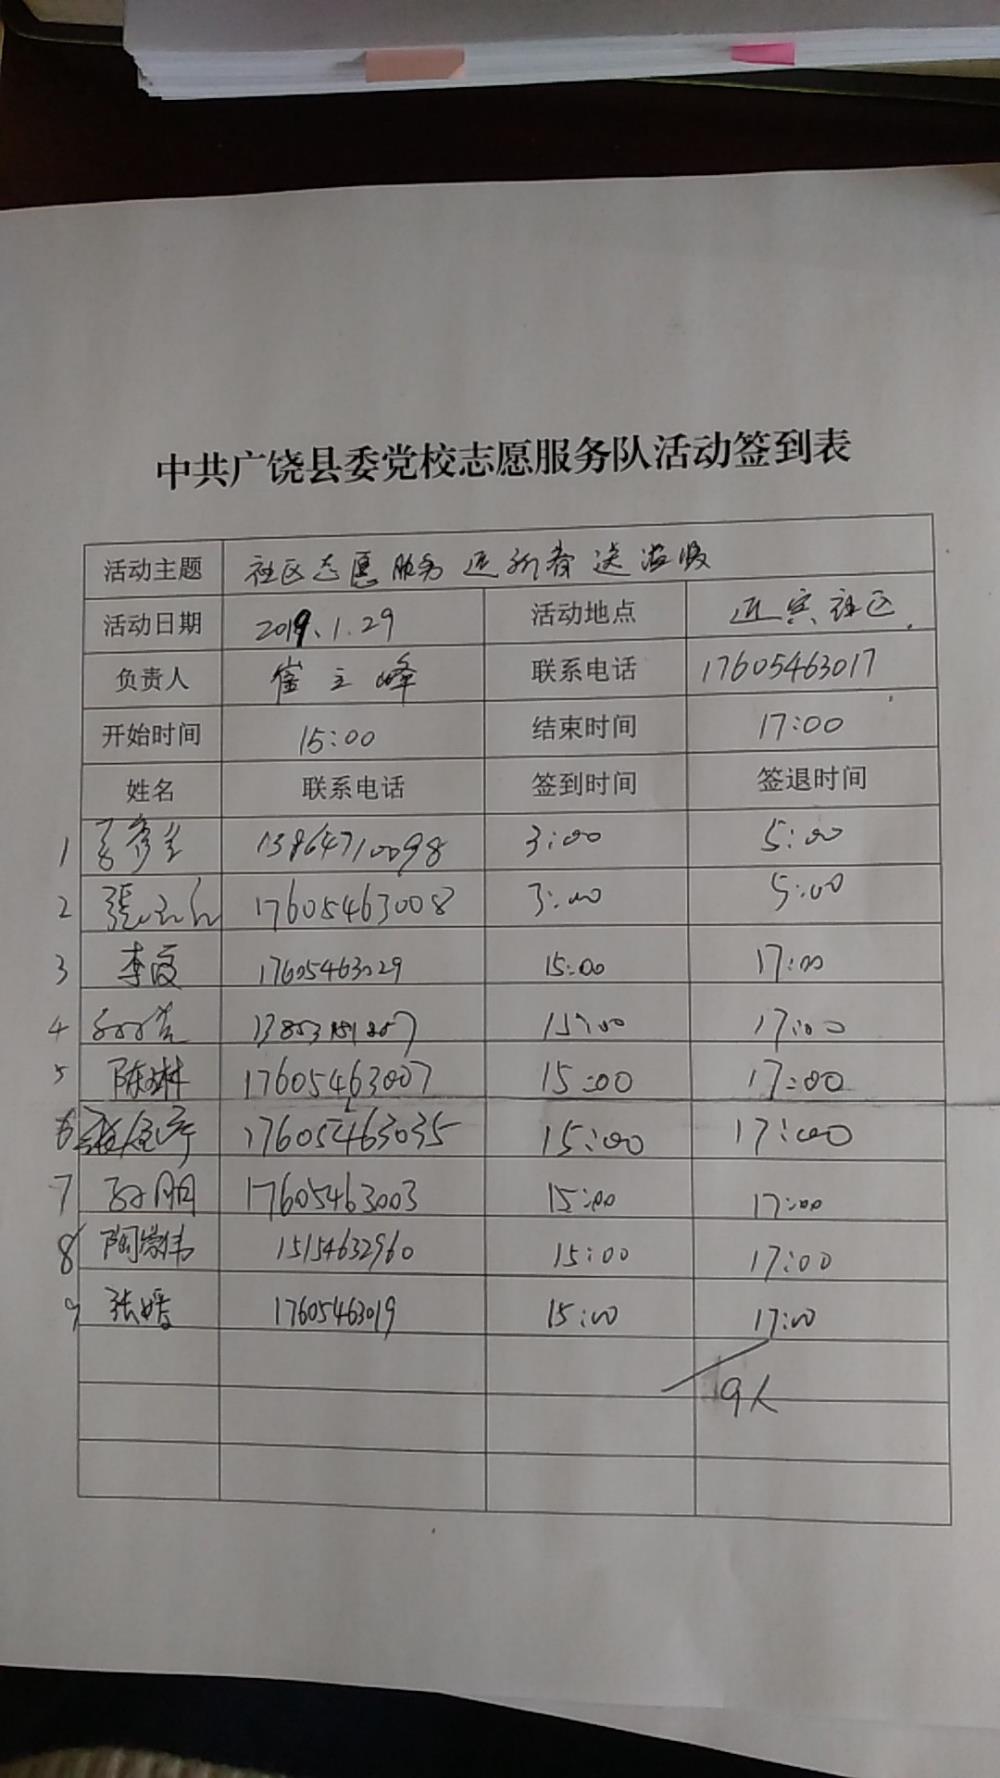 中共广饶县委党校志愿服务队活动签到表
活动主题 社区志愿服务 迎新春送温暖
活动日期 2019.1.29 活动地点 迎宾社区
负责人 崔立峰 联系电话 17605463017
开始时间 15:00 结束时间 17:00
姓名 联系电话 签到时间 签退时间
1 13864710098 3:00 5:00
2 17605463008 3:00 5:00
3 李霞 17605463029 15:00 17:00
4 15:00 17:00
5 陈琳 17605463007 15:00 17:00
6 17605463035 15:00 17:00
7 孙明 17605463003 15:00 17:00
8 陶崇伟 15154632960 15:00 17:00
9 张婷 17605463019 15:00 17:00
9人